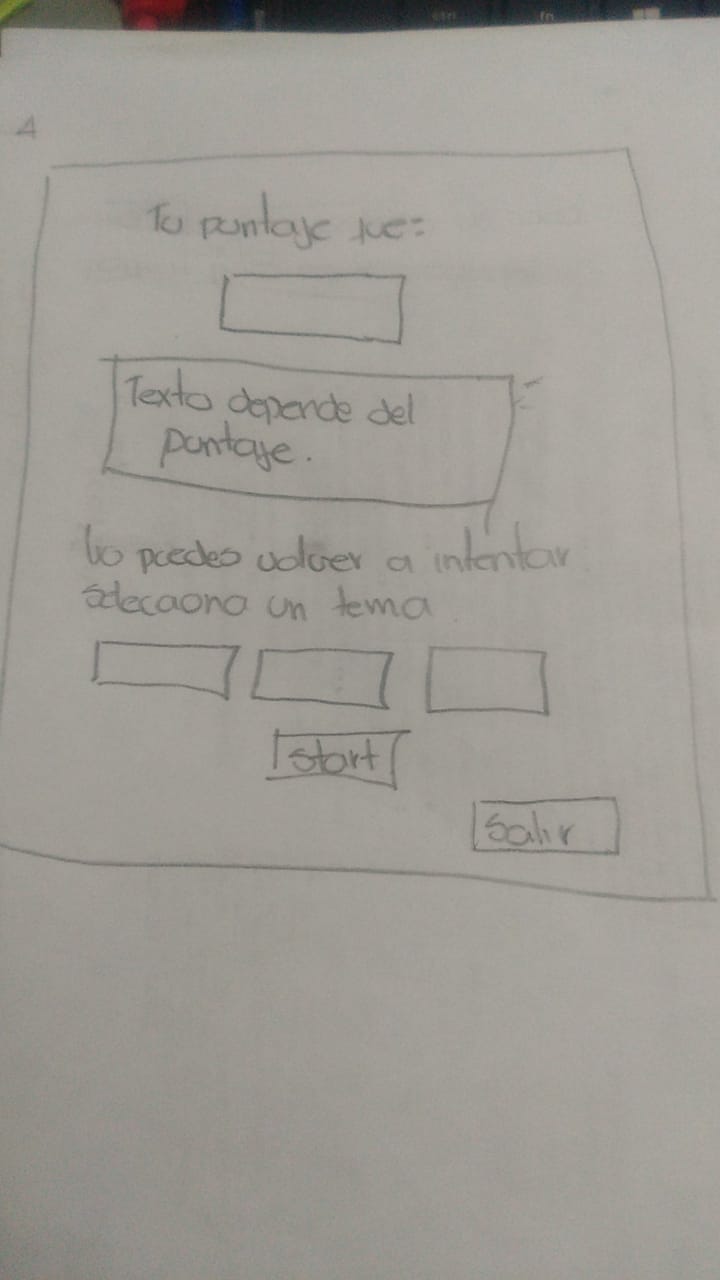 4
Tu puntaje fue:
Texto depende del
puntaje.
Lo puedes volver a intentar
selecciona un tema
start
Salir